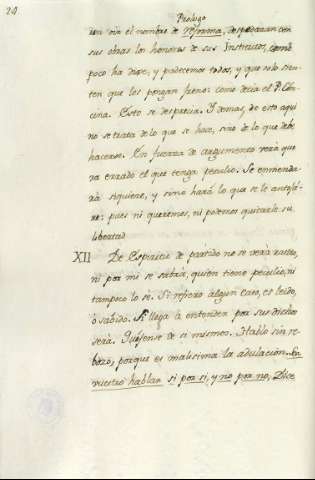 20
Prologo
aun oir el nombre de reforma, despedazan con
sus obras los honores de sus Institutos, como
poco ha dixe, y padecemos todos, y que solo sien-
ten que les pongan freno: como decia el P. Con-
cina. Esto se desprecia. Y demas, de esto aqui
no se trata de lo que se hace, sino de lo que debe
hacerse. En fuerza de argumento verá que
va errado el que tenga peculio. Se enmenda-
rá siquiere, y sino hará lo que se le antoja-
re: pues ni queremos, ni podemos quitarle su
libertad.
XII De Espiritu de partido no se verá rastro,
ni por mi se sabrá, quien tiene peculio, ni
tampoco lo sé. Si refiero algun caso, es leido,
ó sabido. Si llega á entenderse por sus dichos
será. Quéjense de si mismos. Hablo sin re-
bozo, porque es malisima la adulacion. Sea
vuestro hablar si por si, y no por no, Dice